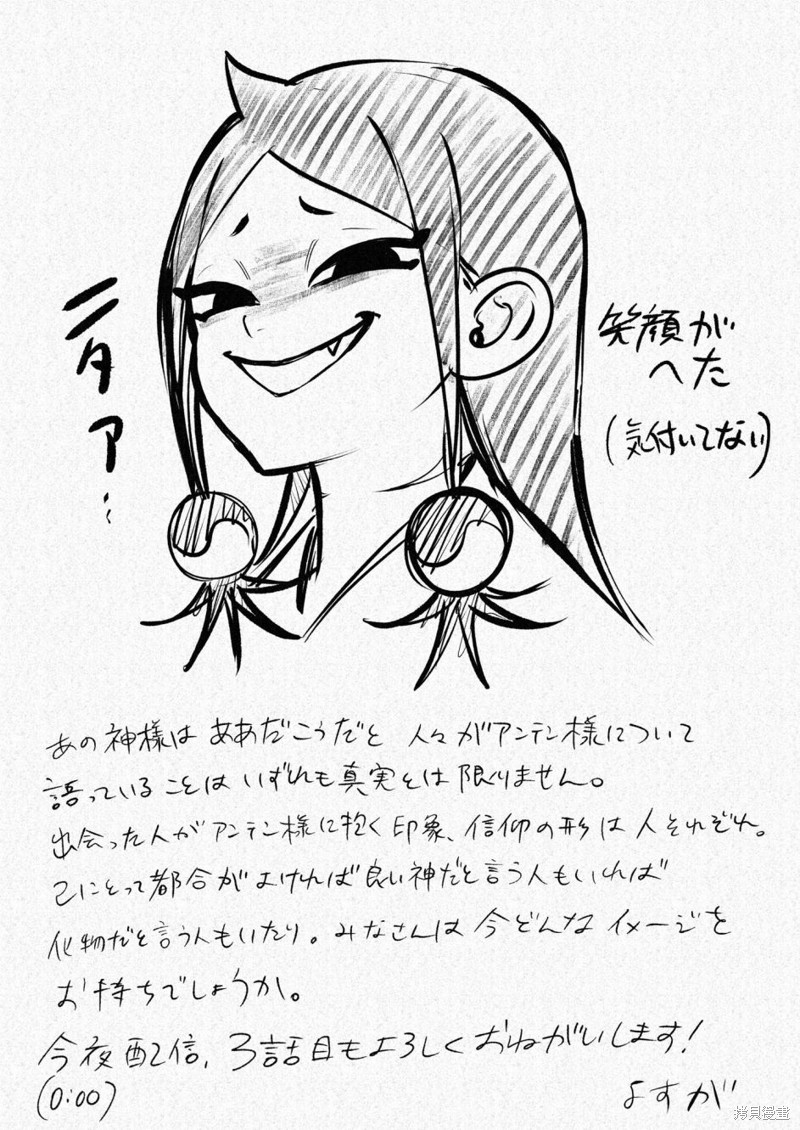 ニタァ…
笑顔が
へた
(気付いてない)
あの神様はああだこうだと 人々がアンテン様について
語っていることはいずれも真実とは限りません。
出会った人がアンテン様に抱く印象、信仰の形は人それぞれ。
己にとって都合がよければ良い神だと言う人もいれば
化物だと言う人もいたり。みなさんは今どんなイメージを
お持ちでしょうか。
今夜配信、3話目もよろしくおねがいします!
(0:00)
よすが
拷貝漫畫